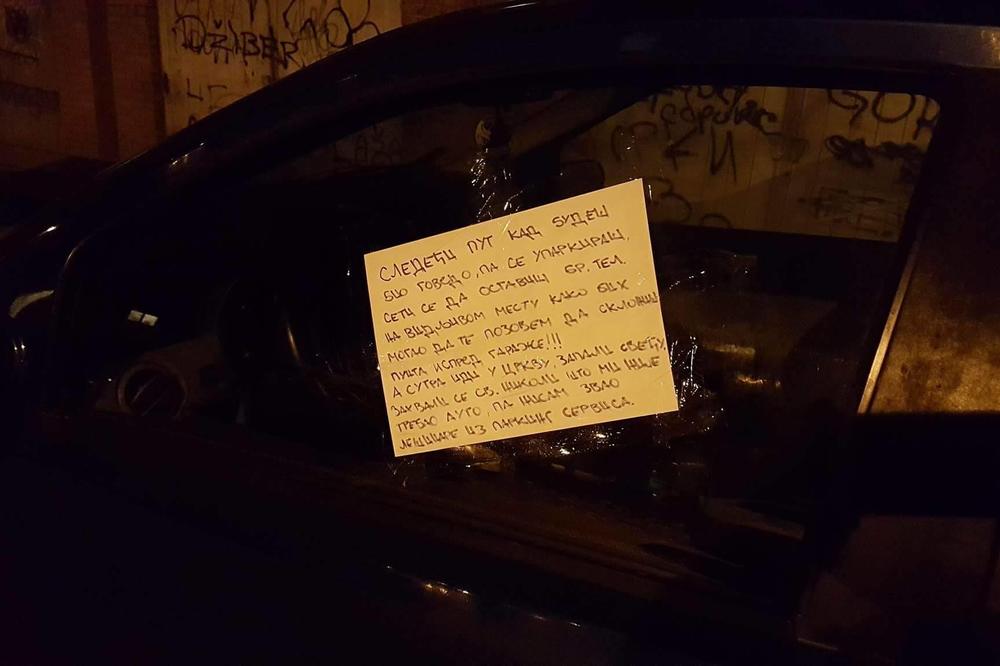 DŽIBER
КИ
СЛЕДЕЋИ ПУТ КАД БУДЕШ
БИО ГОВЕДО, ПА СЕ УПАРКИРАШ,
СЕТИ СЕ ДА ОСТАВИШ БР. ТЕЛ.
НА ВИДЉИВОМ МЕСТУ КАКО БИХ
МОГАО ДА ТЕ ПОЗОВЕМ ДА СКЛОНИШ
ИСПРЕД ГАРАЖЕ!!!
А СУТРА ИДИ У ЦРКВУ, ЗАПАЛИ СВЕЋУ,
ЗАХВАЛИ СЕ СВ. НИКОЛИ ШТО МИ НИЈЕ
ТРЕБАО АУТО, ПА НИСАМ ЗВАО
ЛЕШИНАРЕ ИЗ ПАРКИНГ СЕРВИСА.